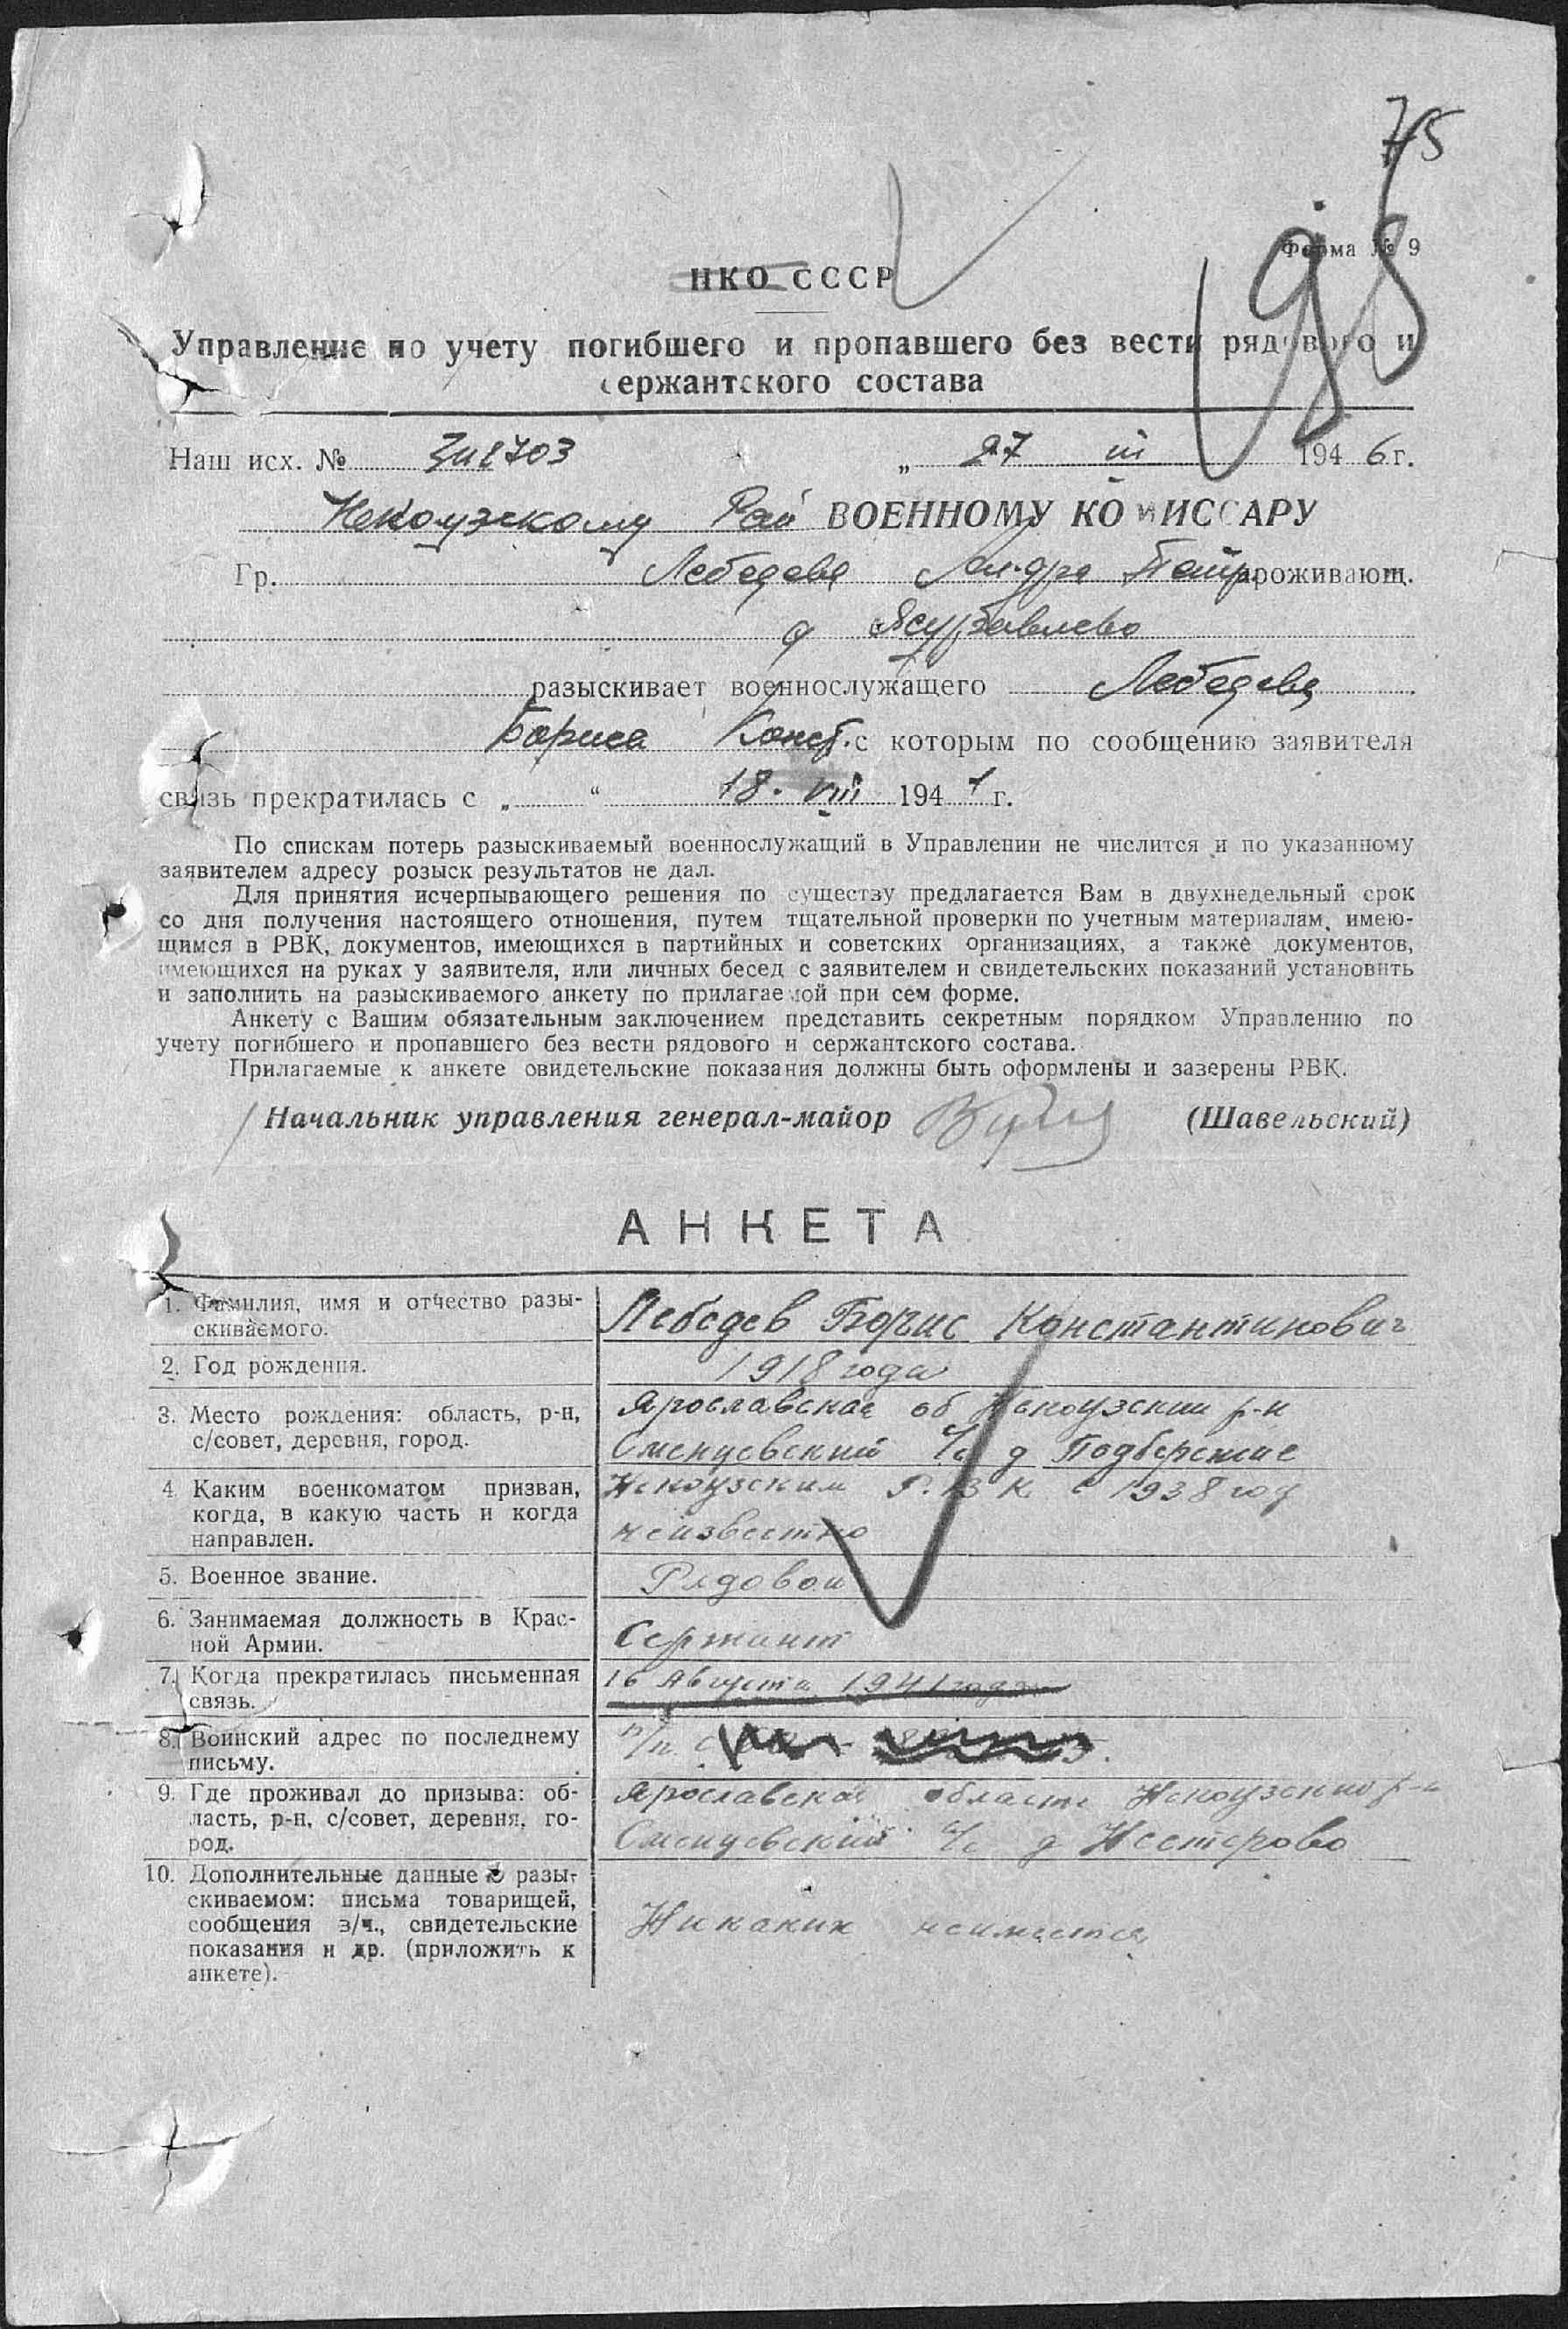 75
98
Форма № 9
НКО СССР
Управление по учету погибшего и пропавшего без вести рядового и
сержантского состава
Наш исх. № „ 27 III 1946 г.
Некоузскому Рай ВОЕННОМУ КОМИССАРУ
Гр. Лебедева проживающ.
д
разыскивает военнослужащего Лебедева
Бориса Конст. с которым по сообщению заявителя
связь прекратилась с „ “ 18. VIII 1941 г.
По спискам потерь разыскиваемый военнослужащий в Управлении не числится и по указанному
заявителем адресу розыск результатов не дал.
Для принятия исчерпывающего решения по существу предлагается Вам в двухнедельный срок
со дня получения настоящего отношения, путем тщательной проверки по учетным материалам, имею-
щимся в РВК, документов, имеющихся в партийных и советских организациях, а также документов,
имеющихся на руках у заявителя, или личных бесед с заявителем и свидетельских показаний установить
и заполнить на разыскиваемого анкету по прилагаемой при сем форме.
Анкету с Вашим обязательным заключением представить секретным порядком Управлению по
учету погибшего и пропавшего без вести рядового и сержантского состава.
Прилагаемые к анкете свидетельские показания должны быть оформлены и заверены РВК.
Начальник управления генерал-майор (Шавельский)
АНКЕТА
1. Фамилия, имя и отчество разы-
скиваемого.
Лебедев Борис Константинович
2. Год рождения.
1918 года
3. Место рождения: область, р-н,
с/совет, деревня, город.
Ярославская об Некоузский р-н
Сменцевский с/с д Подбережие
4. Каким военкоматом призван,
когда, в какую часть и когда
направлен.
Некоузским Р.В.К. с 1938 год
неизвестно
5. Военное звание.
Рядовой
6. Занимаемая должность в Крас-
ной Армии.
Сержант
7. Когда прекратилась письменная
связь.
16 Августа 1941 года
8. Воинский адрес по последнему
письму.
п/п
9. Где проживал до призыва: об-
ласть, р-н, с/совет, деревня, го-
род.
Ярославской области Некоузский р-н
Сменцевский с/с д Нестерово
10. Дополнительные данные о разы-
скиваемом: письма товарищей,
сообщения в/ч., свидетельские
показания и др. (приложить к
анкете).
Никаких неимеется